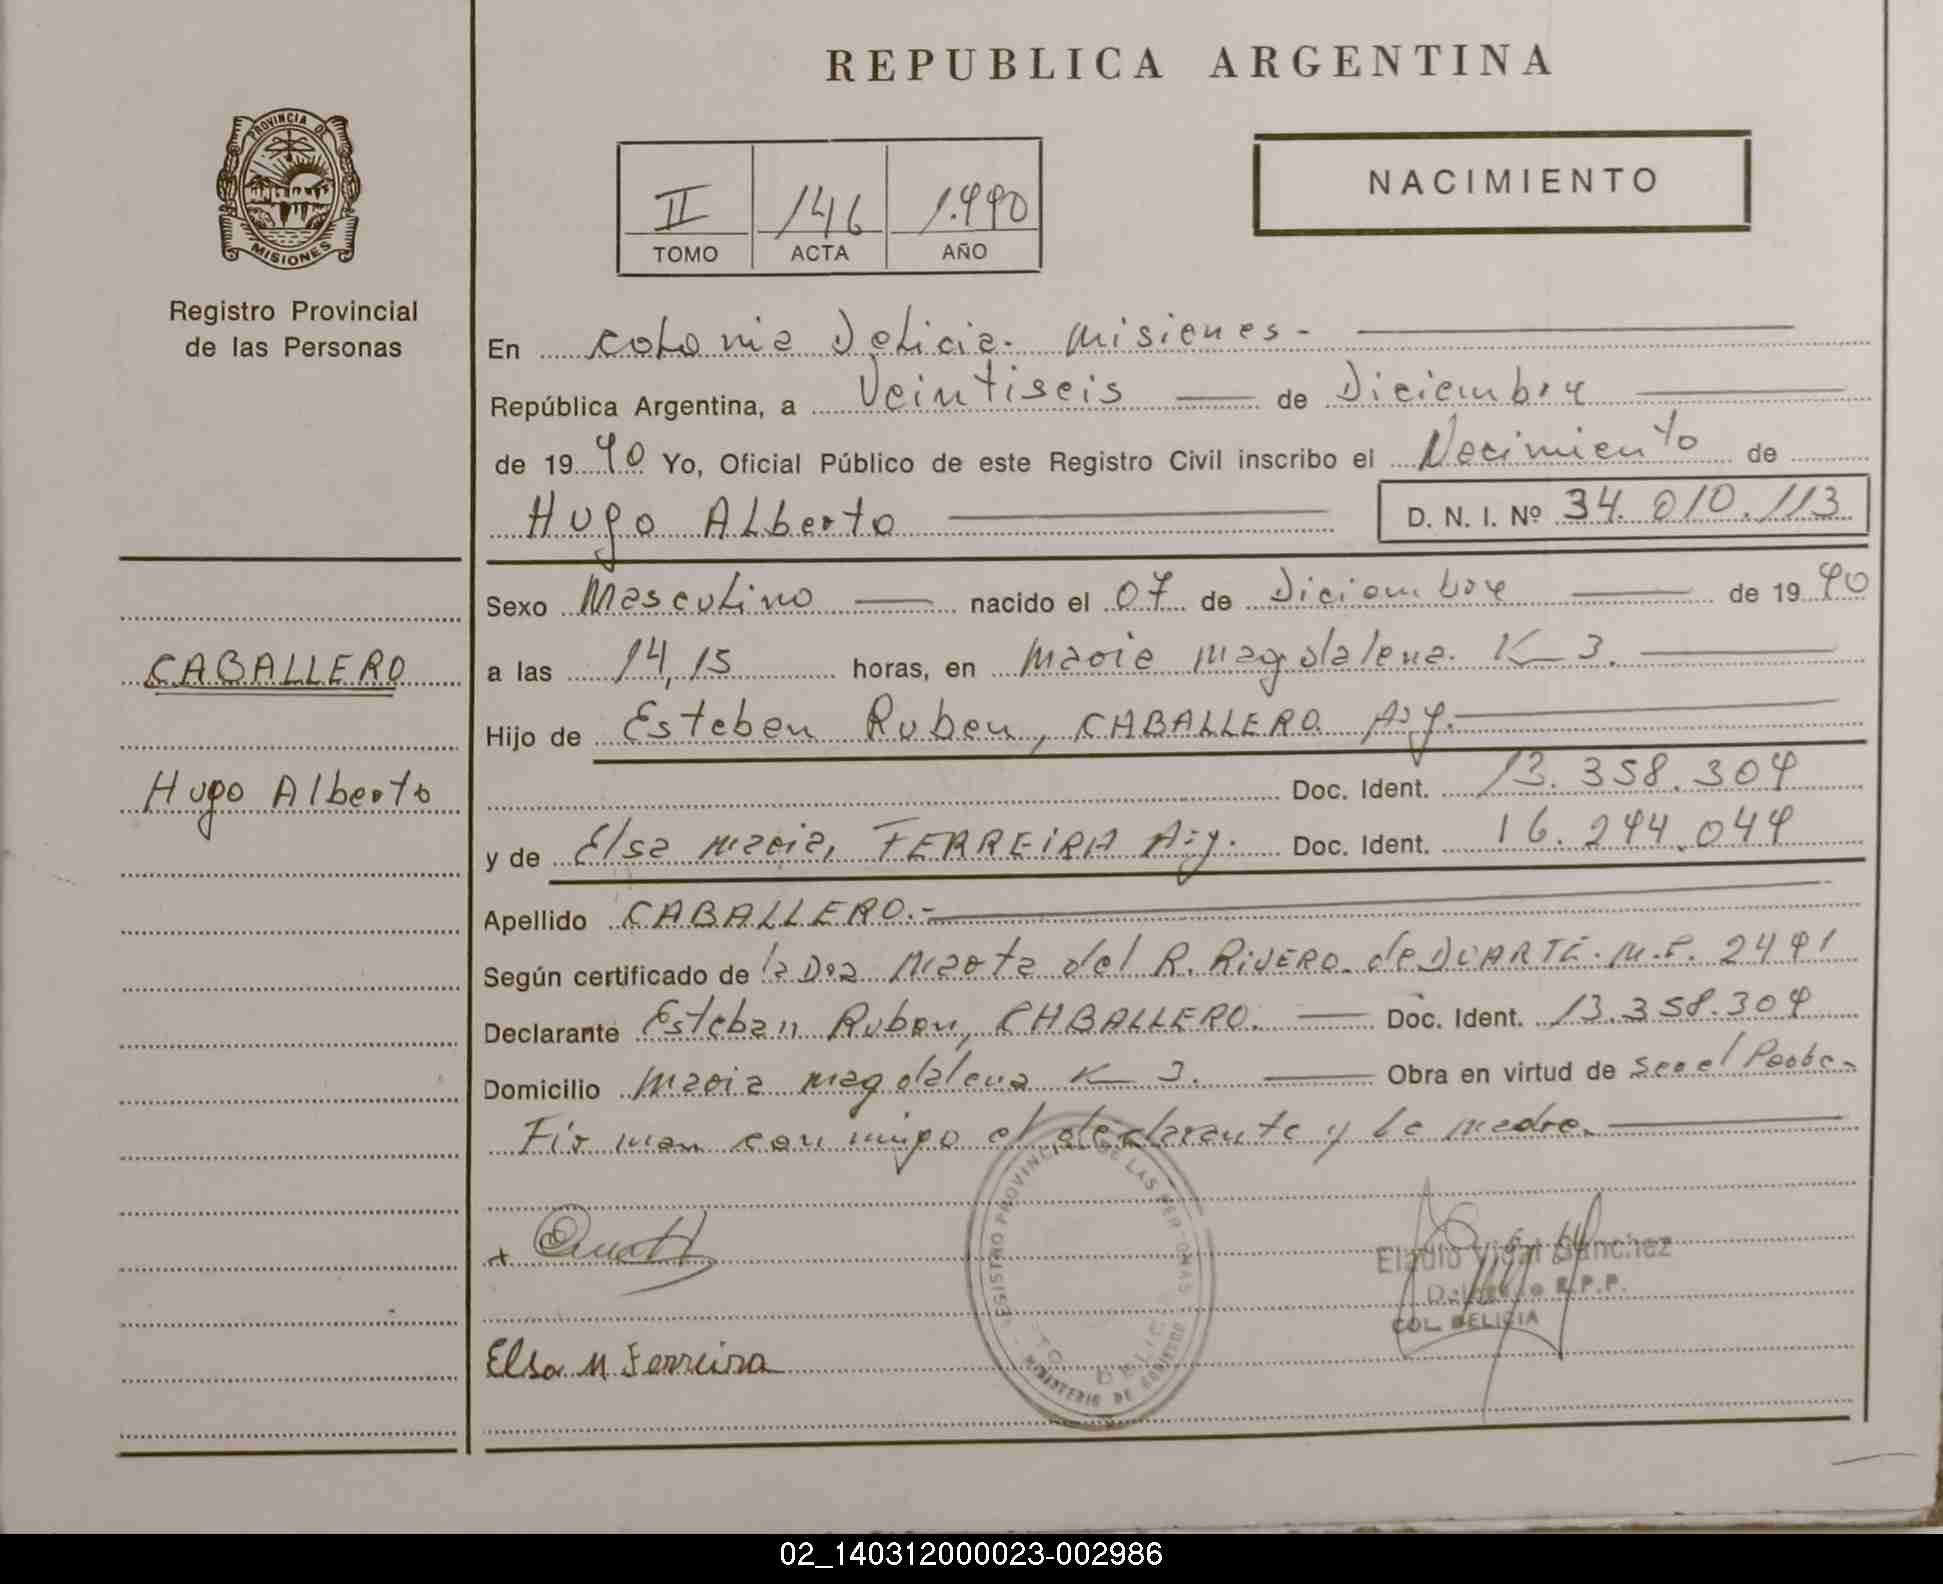 REPUBLICA ARGENTINA
PROVINCIA DE
MISIONES
Registro Provincial
de las Personas
II 146 1.990
TOMO ACTA AÑO
NACIMIENTO
En Colonia Delicia. Misiones -
República Argentina, a Veintiseis de Diciembre
de 19 90 Yo, Oficial Público de este Registro Civil inscribo el Nacimiento de
Hugo Alberto D. N. I. Nº 34.010.113
CABALLERO
Hugo Alberto
Sexo Masculino nacido el 07 de Diciembre de 19 90
a las 14,15 horas, en Maria Magdalena. K 3.
Hijo de Esteban Ruben, CABALLERO Arg.
Doc. Ident. 13.358.309
y de Elsa Maria, FERREIRA Arg. Doc. Ident. 16.294.049
Apellido CABALLERO.-
Según certificado de la Dra Marta del R. RIVERO de DUARTE. M.P. 2491
Declarante Esteban Ruben, CABALLERO. Doc. Ident. 13.358.309
Domicilio Maria Magdalena K 3. Obra en virtud de ser el Padre-
Firman conmigo el declarante y la madre.
REGISTRO PROVINCIAL DE LAS PERSONAS
MINISTERIO DE GOBIERNO
Eladio Vidal Sanchez
Delegado R.P.P.
COL. DELICIA
Elsa M Ferreira
02_140312000023-002986